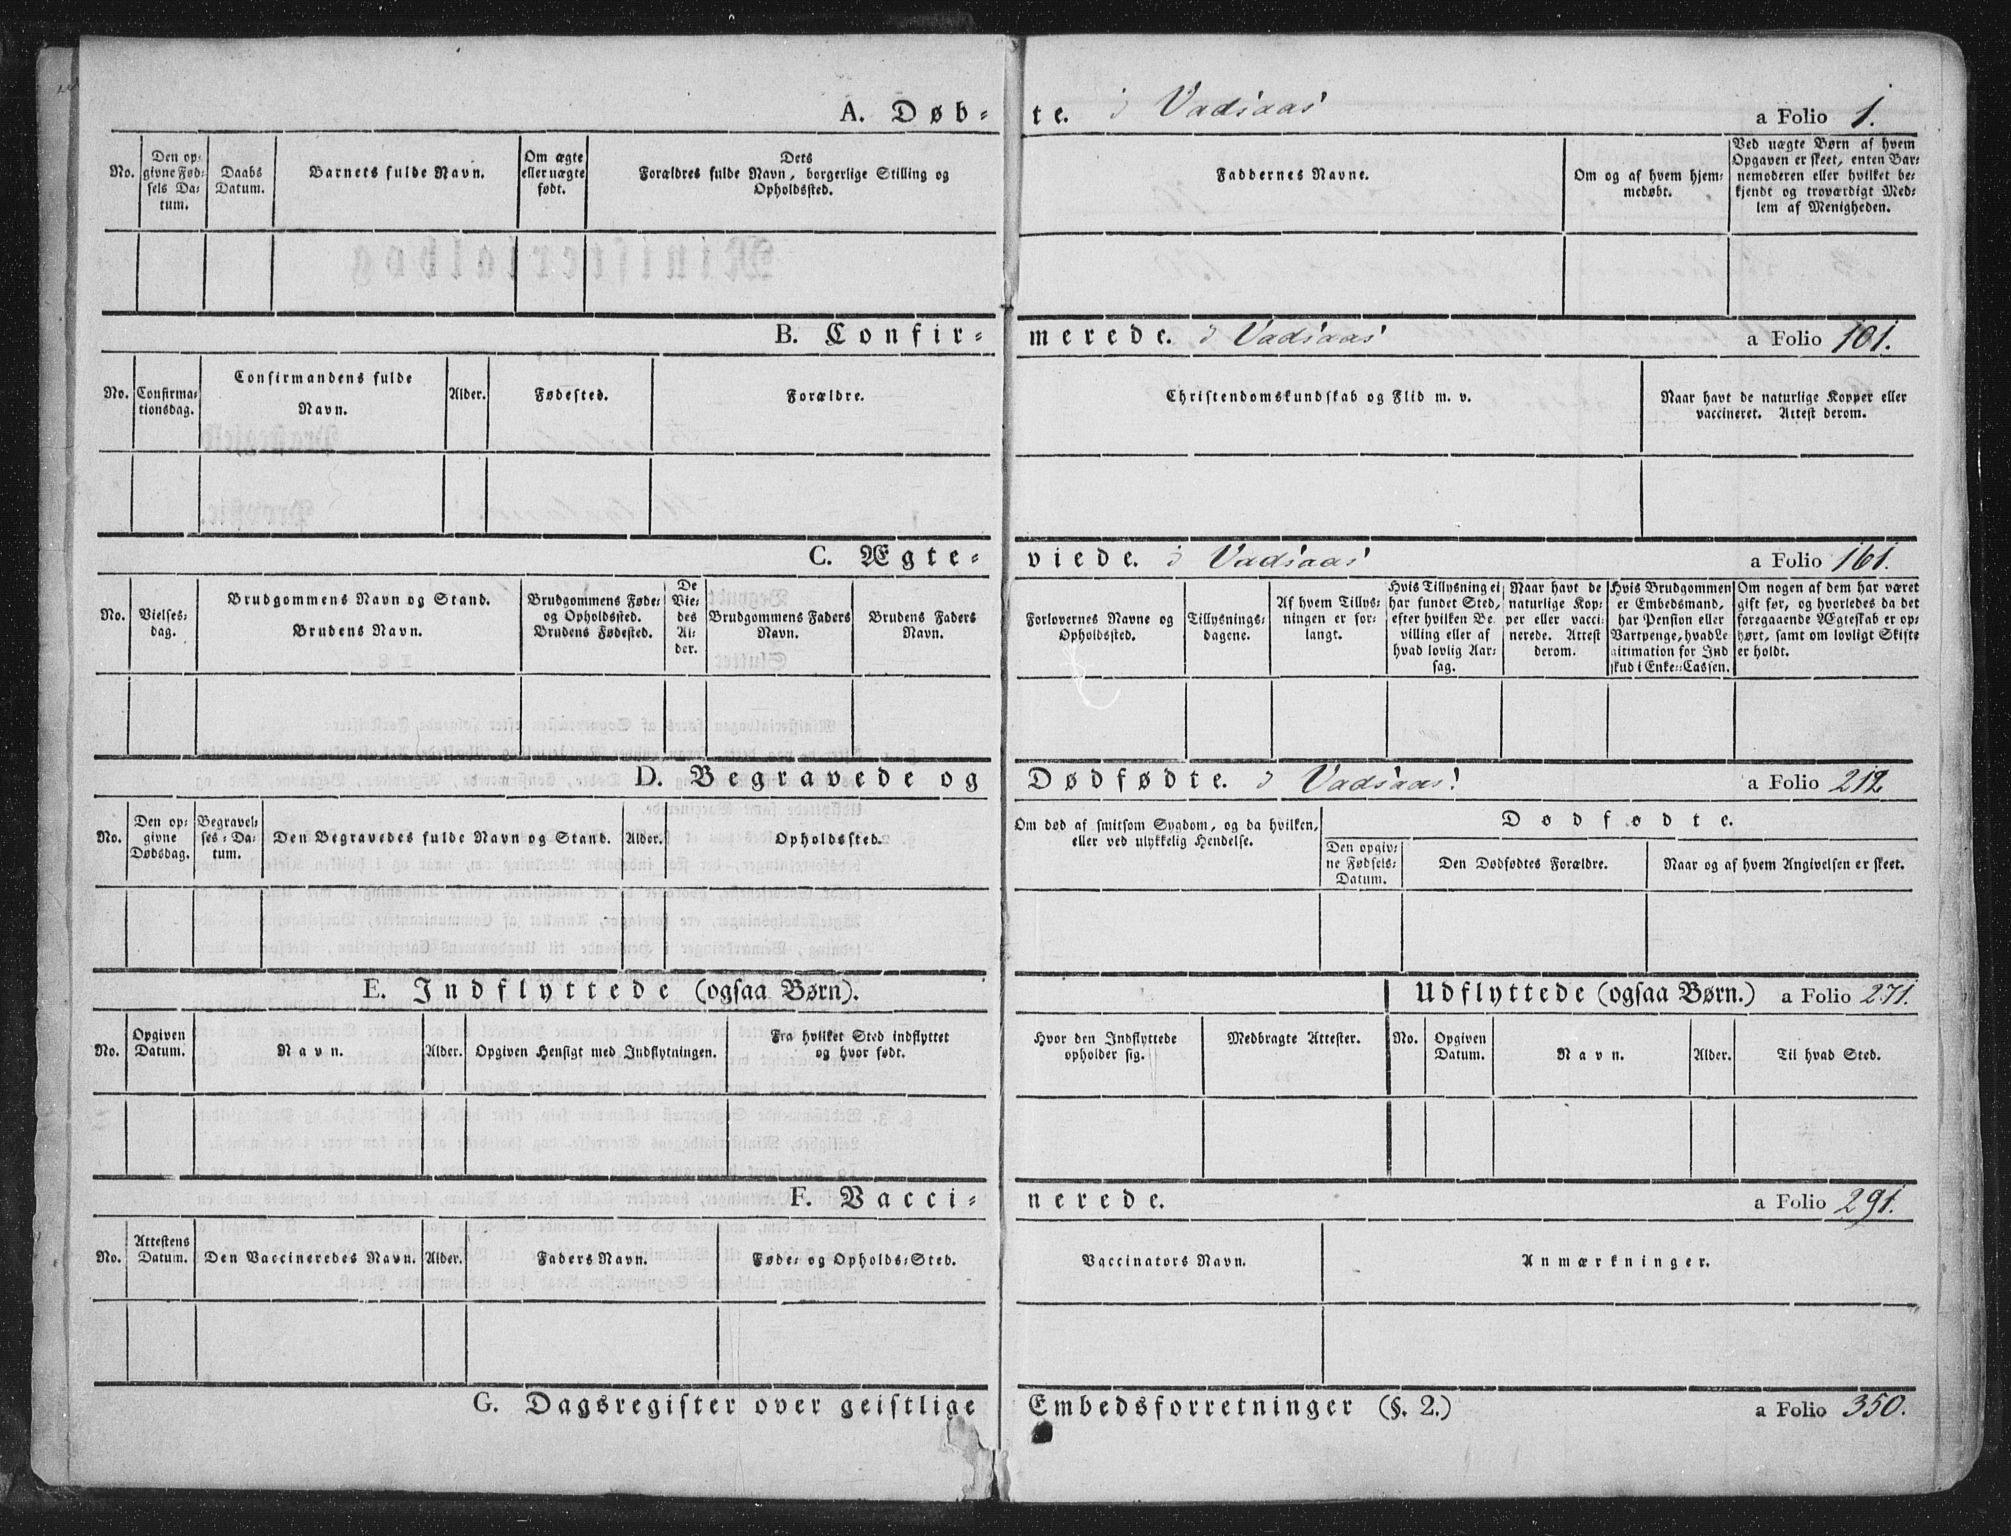 A. Døb- te. i Vadsaas a Folio 1.
No.
Den op-
givne Fød-
sels Da-
tum.
Daabs
Datum.
Barnets fulde Navn.
Om ægte
eller uægte
født.
Dets
Forældres fulde Navn, borgerlige Stilling og
Opholdssted.
Faddernes Navne.
Om og af hvem hjem-
medøbt.
Ved uægte Børn af hvem
Opgaven er skeet, enten Bar-
nemoderen eller hvilket be-
kjendt og troværdigt Med-
lem af Menigheden.
B. Confir- merede. i Vadsaas a Folio 101.
No.
Confirma-
tionsdag.
Confirmandens fulde
Navn.
Alder.
Fødested.
Forældre.
Christendomskundskab og Flid m. v.
Naar havt de naturlige Kopper eller
vaccineret. Attest derom.
C. Ægte- viede. i Vadsaas a Folio 161.
No.
Vielses-
dag.
Brudgommens Navn og Stand.
Brudens Navn.
Brudgommens Føde-
og Opholdssted.
Brudens Fødested.
De
Vie-
des
Al-
der.
Brudgommens Faders
Navn.
Brudens Faders
Navn.
Forlovernes Navne og
Opholdssted.
Tillysnings-
dagene.
Af hvem Tillys-
ningen er for-
langt.
Hvis Tillysning ei
har fundet Sted,
efter hvilken Be-
villing eller af
hvad lovlig Aar-
sag.
Naar havt de
naturlige Kop-
per eller vacci-
nerede. Attest
derom.
Hvis Brudgommen
er Embedsmand,
har Pension eller
Vartpenge, hvad Le-
gitimation for Ind
skud i Enke-Cassen.
Om nogen af dem har været
gift før, og hvorledes da det
foregaaende Ægteskab er op-
hørt, samt om lovligt Skifte
er holdt.
D. Begravede og Dødfødte. i Vadsaas a Folio 212
No.
Den op-
givne
Dødsdag.
Begravel-
ses-Da-
tum.
Den Begravedes fulde Navn og Stand.
Alder.
Opholdssted.
Om død af smitsom Sygdom, og da hvilken,
eller ved ulykkelig Hendelse.
Dødfødte.
Den opgiv-
ne Fødsels-
Datum.
Den Dødfødtes Forældre.
Naar og af hvem Angivelsen er skeet.
E. Indflyttede (ogsaa Børn). Udflyttede (ogsaa Børn.) a Folio 271.
No.
Opgiven
Datum.
Navn.
Alder.
Opgiven Hensigt med Indflytningen.
Fra hvilket Sted indflyttet
og hvor født.
Hvor den Indflyttede
opholder sig.
Medbragte Attester.
No.
Opgiven
Datum.
Navn.
Alder.
Til hvad Sted.
F. Vacci- nerede. a Folio 291.
No.
Attestens
Datum.
Den Vaccineredes Navn.
Alder.
Faders Navn.
Føde- og Opholds-Sted.
Vaccinators Navn.
Anmærkninger.
G. Dagsregister over geistlige Embedsforretninger (§. 2.) a Folio 350.